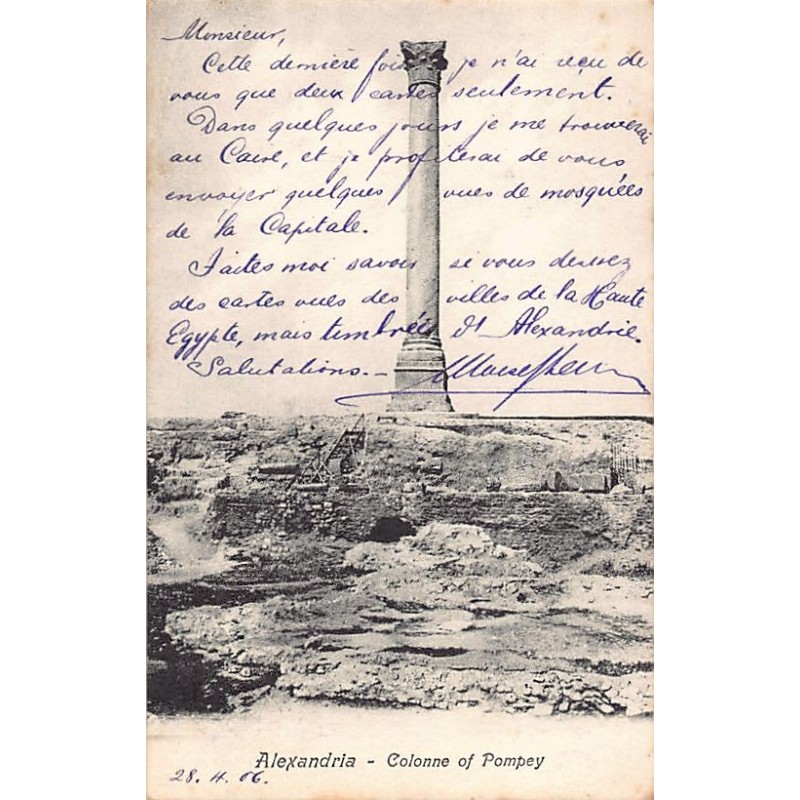 Monsieur,
Cette dernière fois je n'ai reçu de
vous que deux cartes seulement.
Dans quelques jours je me trouverai
au Caire, et je profiterai de vous
envoyer quelques vues de mosquées
de la Capitale.
Faites moi savoir si vous desirez
des cartes vues des villes de la Haute
Egypte, mais timbrées d'Alexandrie.
Salutations. -
Alexandria - Colonne of Pompey
28. 4. 06.